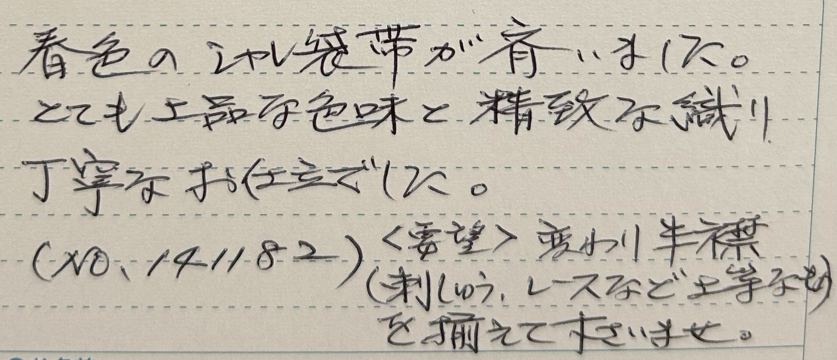 春色のシャレ袋帯が斉いました。
とても上品な色味と精致な織り
丁寧なお仕立でした。
(NO、141182)<要望>変わり半襟
(刺しゅう、レースなど上等なもの)
を揃えて下さいませ。